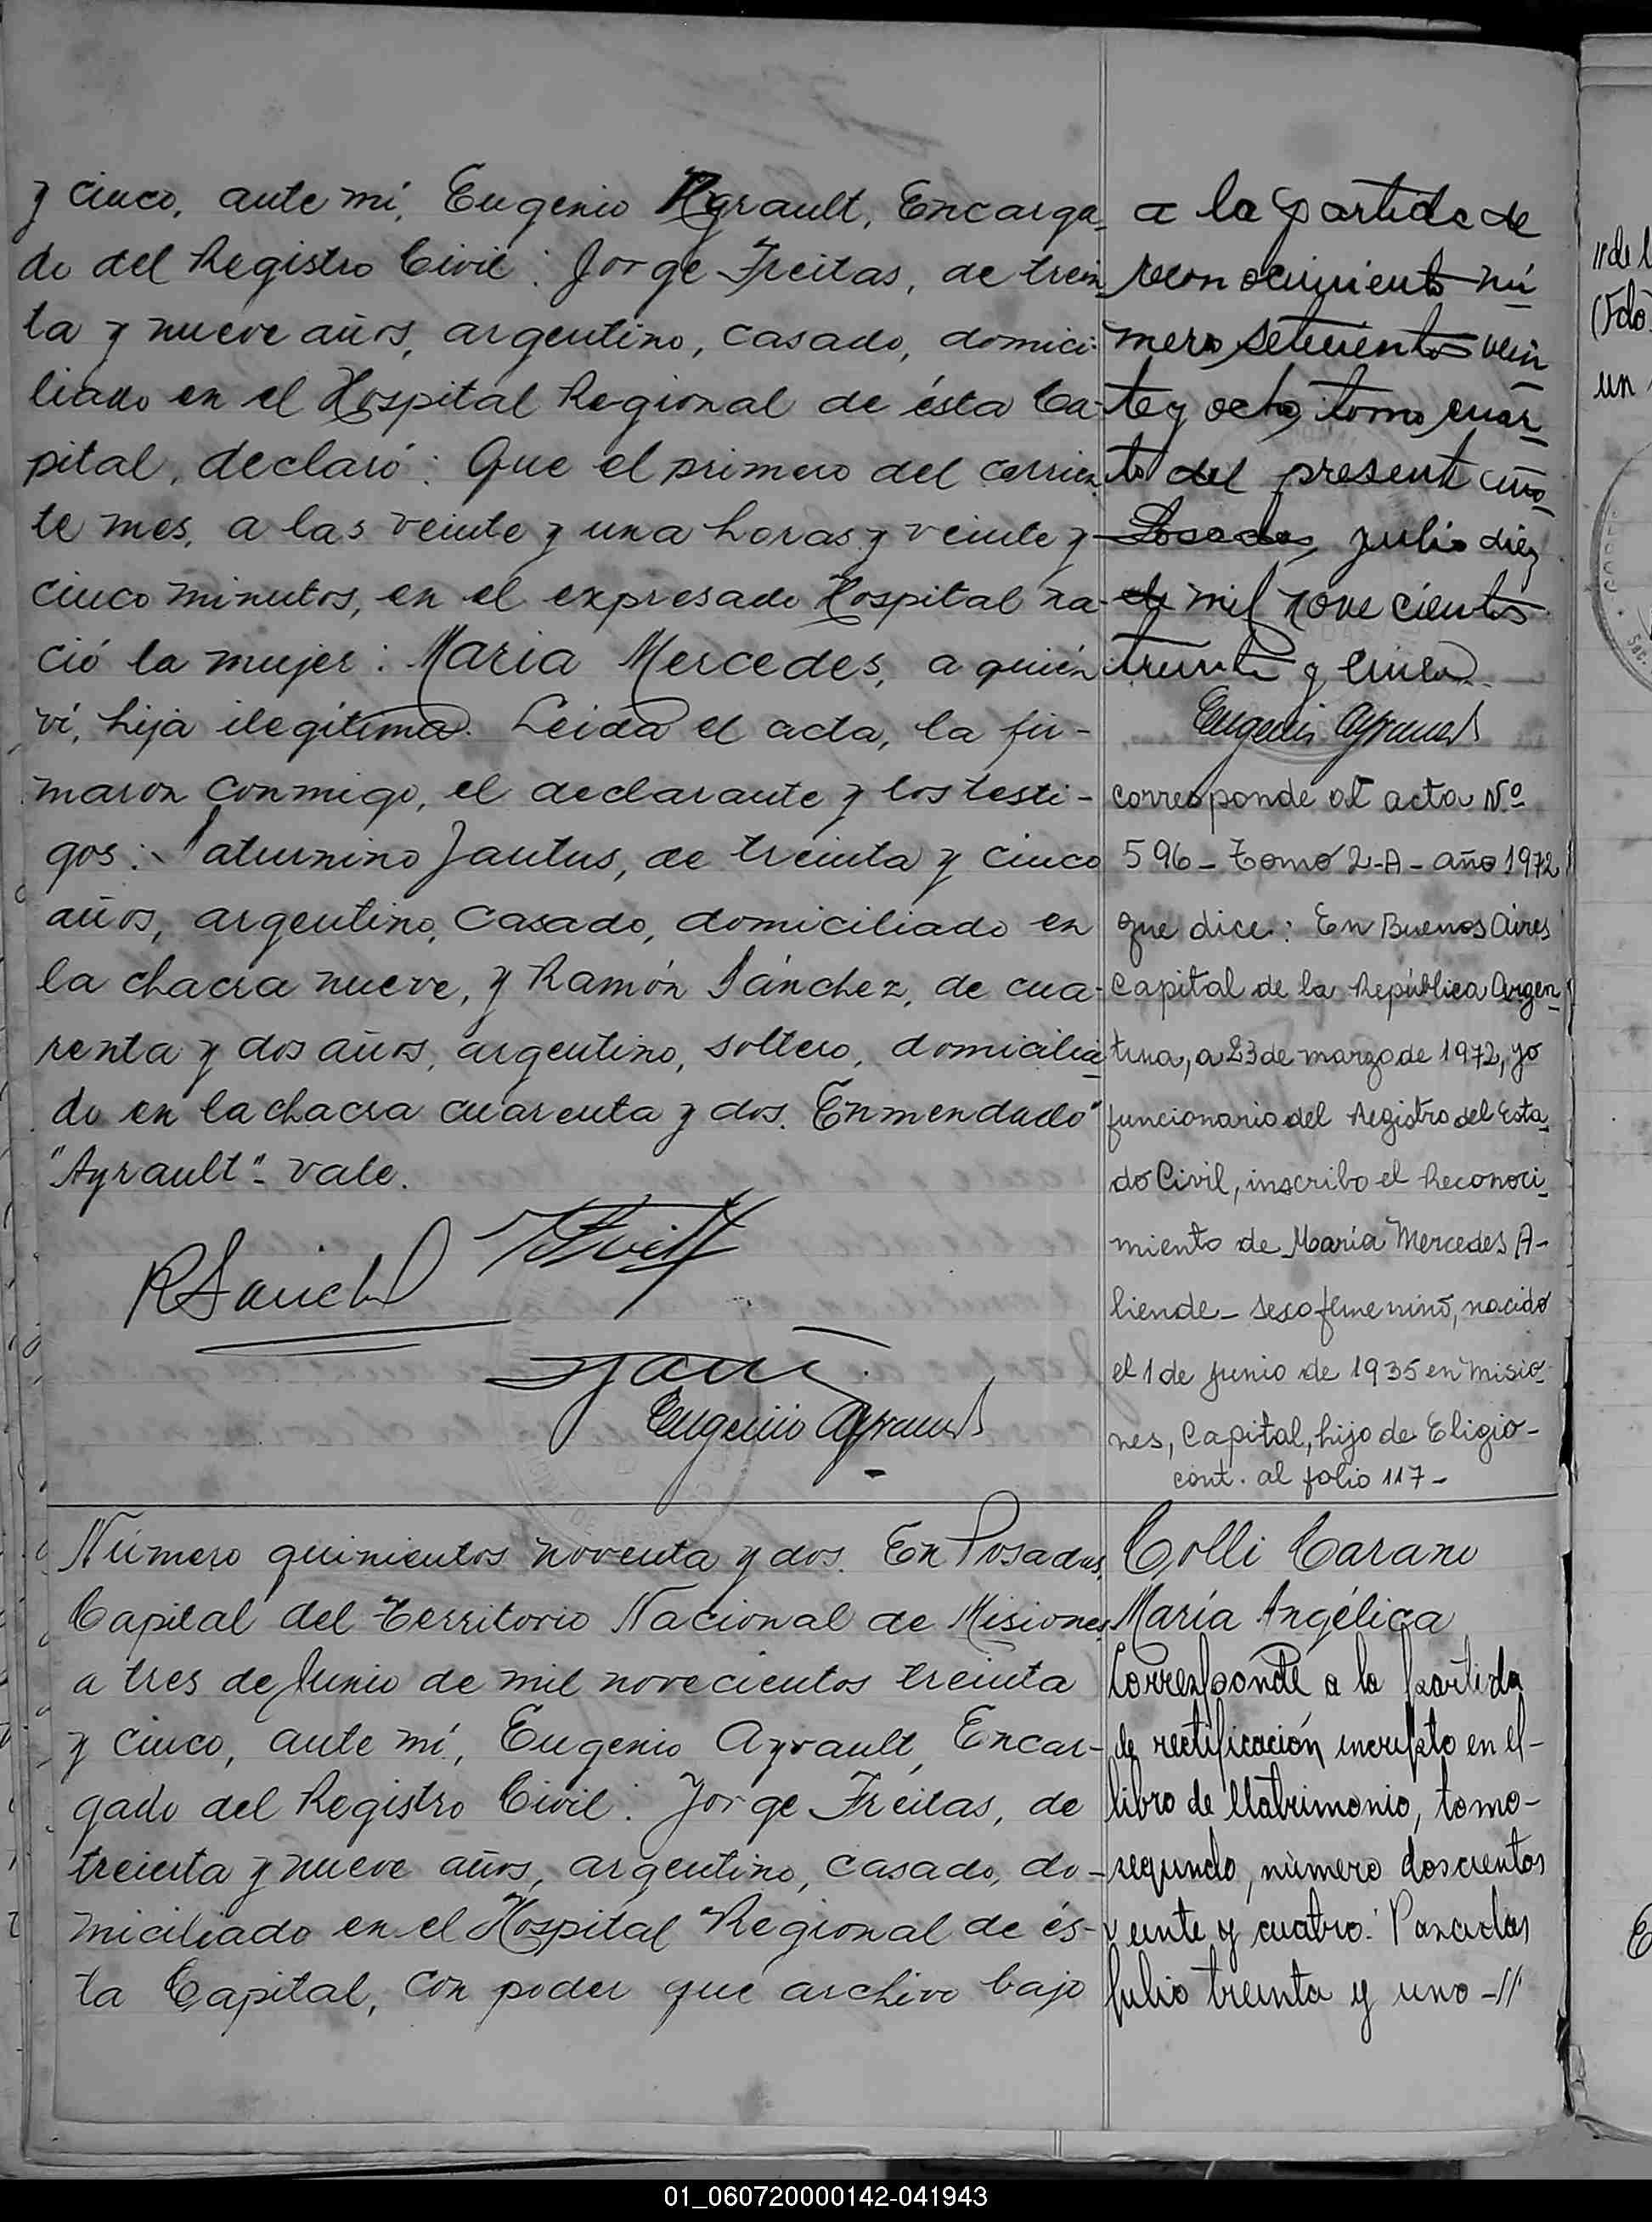 y cinco, ante mí, Eugenio Ayrault, Encarga-
do del Registro Civil: Jorge Freitas, de trein-
ta y nueve años, argentino, casado, domici-
liado en el Hospital Regional de ésta Ca-
pital, declaró: Que el primero del corrien-
te mes, a las veinte y una horas y veinte y
cinco minutos, en el expresado Hospital na-
ció la mujer: María Mercedes, a quién
ví, hija ilegítima. Leida el acta, la fir-
maron conmigo, el declarante y los testi-
gos: Saturnino Jantus, de treinta y cinco
años, argentino, casado, domiciliado en
la chacra nueve, y Ramón Sánchez, de cua-
renta y dos años, argentino, soltero, domicilia-
do en la chacra cuarenta y dos. Enmendado
"Ayrault"- vale.
R Sanch
Eugenio Ayrault
a la partida de
reconocimiento nú
mero setecientos vein
te y ocho, tomo cuar
to del presente año
Posadas, julio diez
de mil novecientos
treinta y cinco
Eugenio Ayrault
corresponde al acta Nº
596 - Tomo 2-A - año 1972
que dice: En Buenos Aires
Capital de la República Argen
tina, a 23 de marzo de 1972, yo
funcionario del Registro del Esta
do Civil, inscribo el Reconoci
miento de María Mercedes A-
liende - sexo femenino, nacido
el 1 de junio de 1935 en Misio
nes, Capital, hijo de Eligio-
cont. al folio 117-
Número quinientos noventa y dos. En Posadas,
Capital del Territorio Nacional de Misiones,
a tres de Junio de mil novecientos treinta
y cinco, ante mí, Eugenio Ayrault, Encar-
gado del Registro Civil: Jorge Freitas, de
treinta y nueve años, argentino, casado, do-
miciliado en el Hospital Regional de és-
ta Capital, con poder que archivo bajo
Colli Carano
María Angélica
Corresponde a la partida
de rectificación incripto en el-
libro de Matrimonio, tomo-
segundo, número doscientos
veinte y cuatro: Posadas
Julio treinta y uno -//
//de l
(Fdo
un
01_060720000142-041943